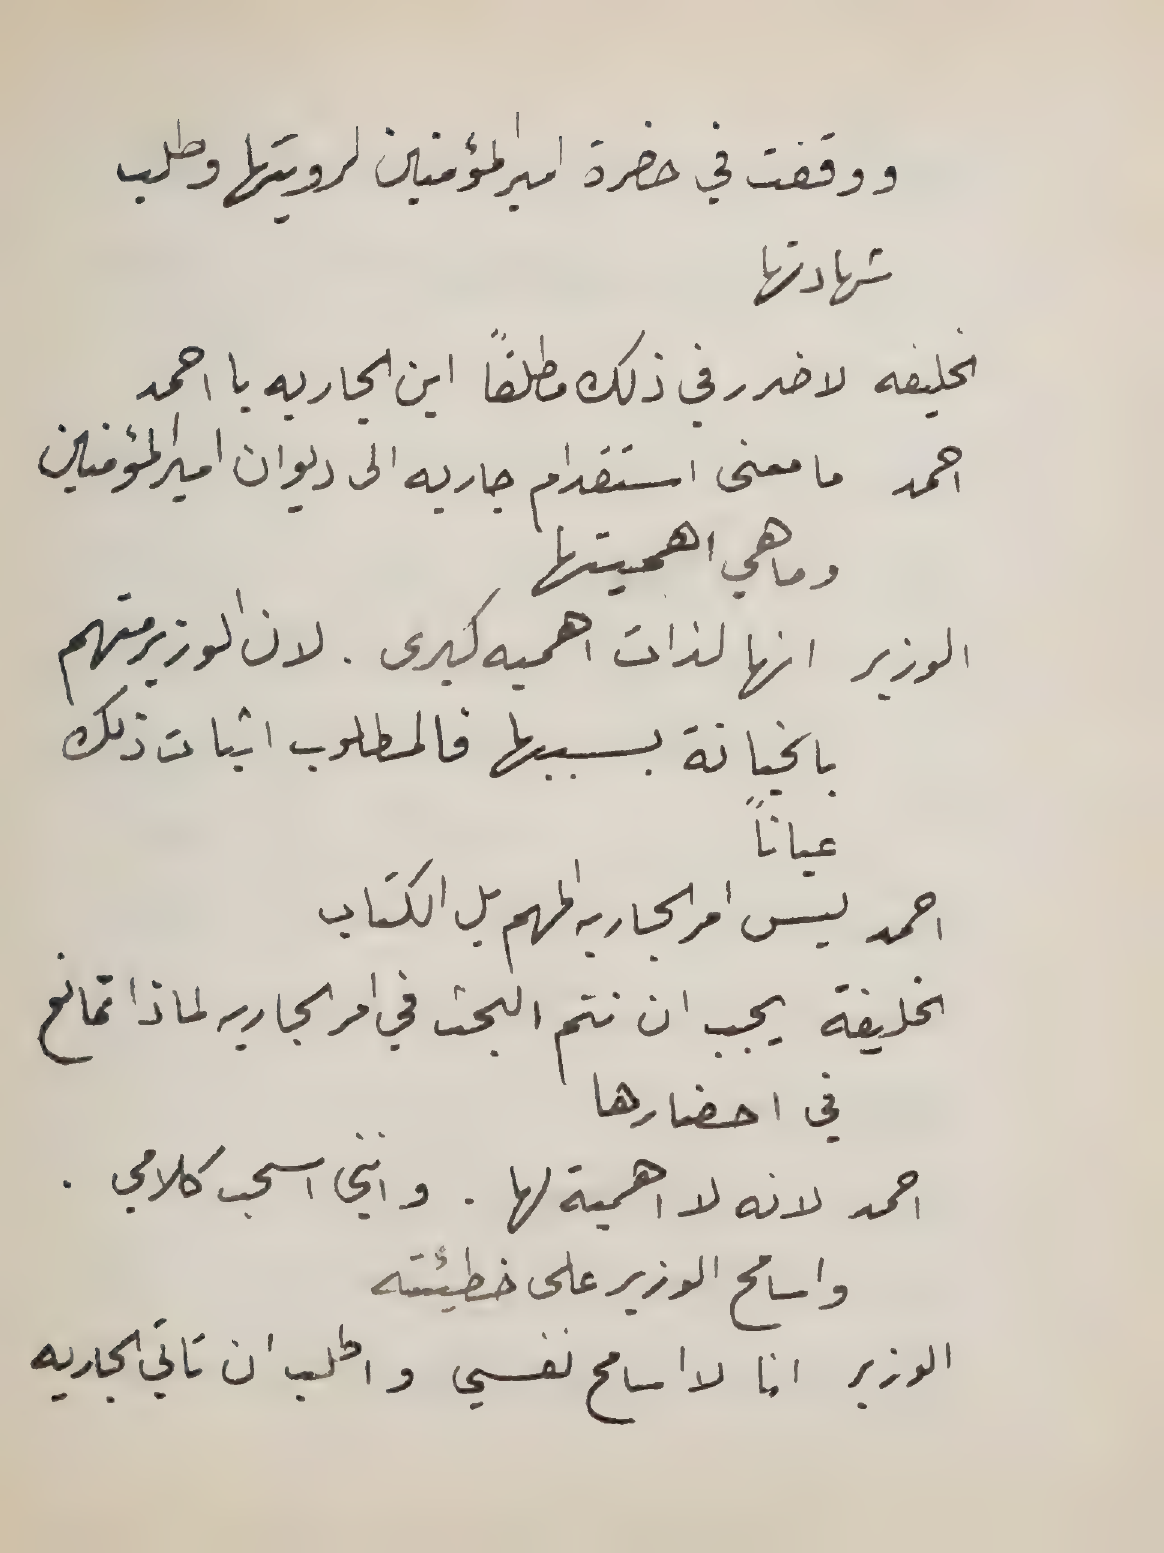 ووقفت في حضرة امير المؤمنين لرويتها وطلب
شهادتها
الخليفه لا ضرر في ذلك مطلقاً اين الجاريه يا احمد
احمد ما معنى استقدام جاريه الى ديوان امير المؤمنين
وما هي اهميتها
الوزير انها لذات اهميه كبرى . لان الوزير متهم
بالخيانة بسببها فالمطلوب اثبات ذلك
عياناً
احمد ليس امر الجاريه المهم بل الكتاب
الخليفة يجب ان نتم البحث في امر الجاريه لماذا تمانع
في احضارها
احمد لانه لا اهمية لها . وانني اسحب كلامي .
واسامح الوزير على خطيئته
الوزير انا لا اسامح نفسي واطلب ان تاتي الجاريه